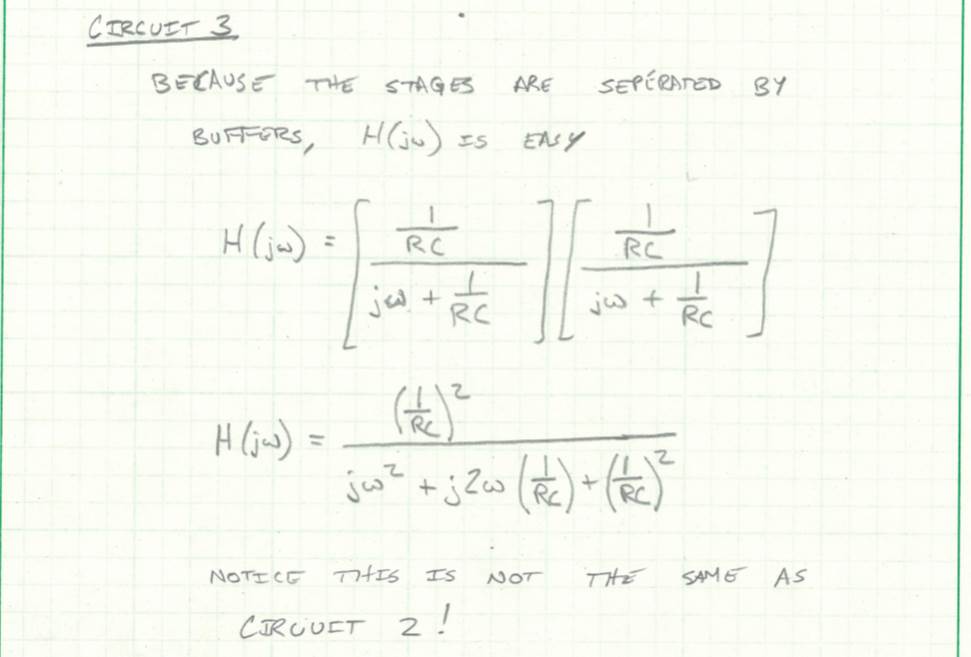 CIRCUIT 3
BECAUSE THE STAGES ARE SEPERATED BY
BUFFERS, H(jω) IS EASY
H(jω) = [ (1/RC) / (jω + 1/RC) ] [ (1/RC) / (jω + 1/RC) ]
H(jω) = (1/RC)² / (jω² + j2ω(1/RC) + (1/RC)²)
NOTICE THIS IS NOT THE SAME AS
CIRCUIT 2!